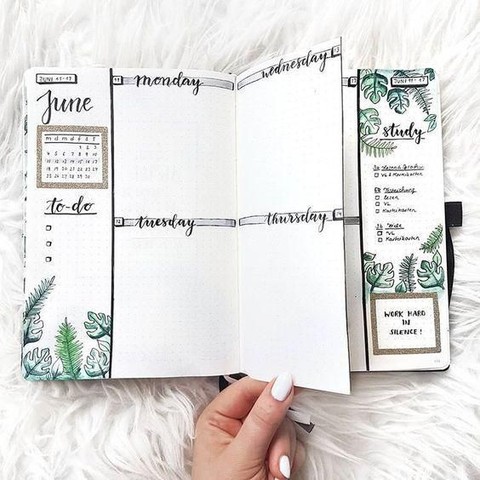 JUNE 11-17
June
m d m d f s s
1 2 3
4 5 6 7 8 9 10
to-do
11 monday
12 tuesday
13
wednesday
thursday 14
JUNE 11-17
study
Lesen
VL
Karteikarten
VL
Karteikarten
WORK HARD
IN
SILENCE!